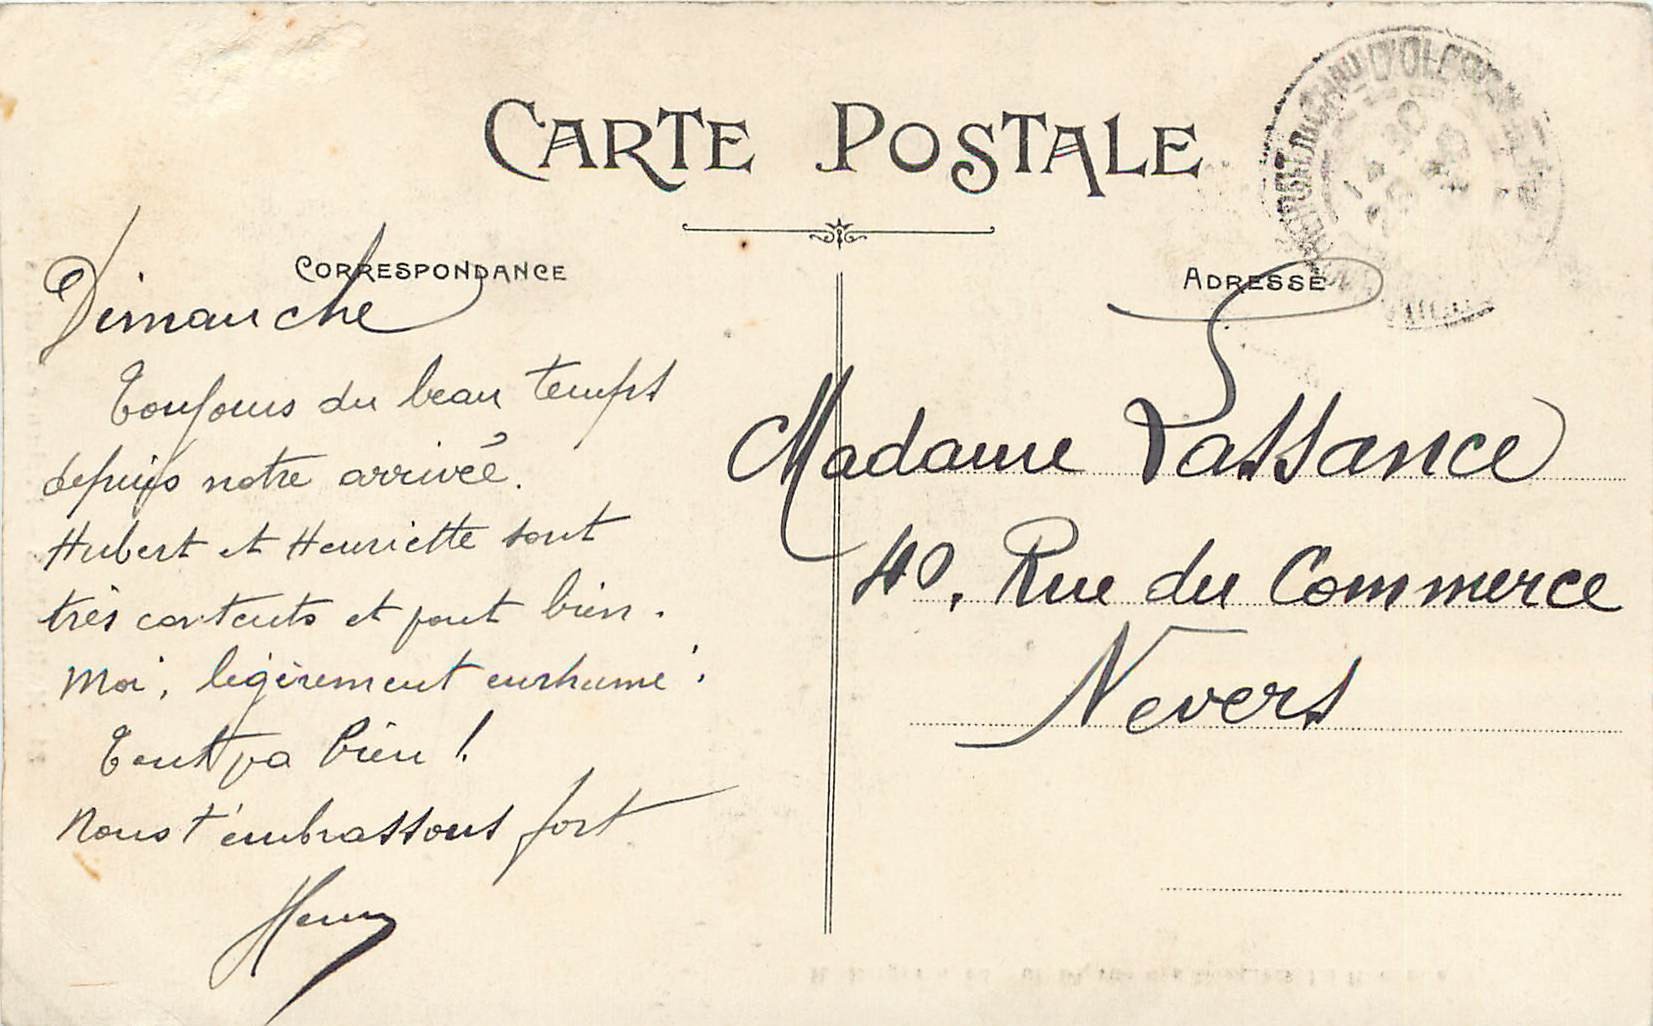 CARTE POSTALE
CORRESPONDANCE
Dimanche
Toujours du beau temps
depuis notre arrivée.
Hubert et Henriette sont
très contents et font bien.
Moi, légèrement enrhumé.
Tout va bien !
Nous t'embrassons fort
Henry
ADRESSE
Madame Lassance
40, Rue du Commerce
Nevers